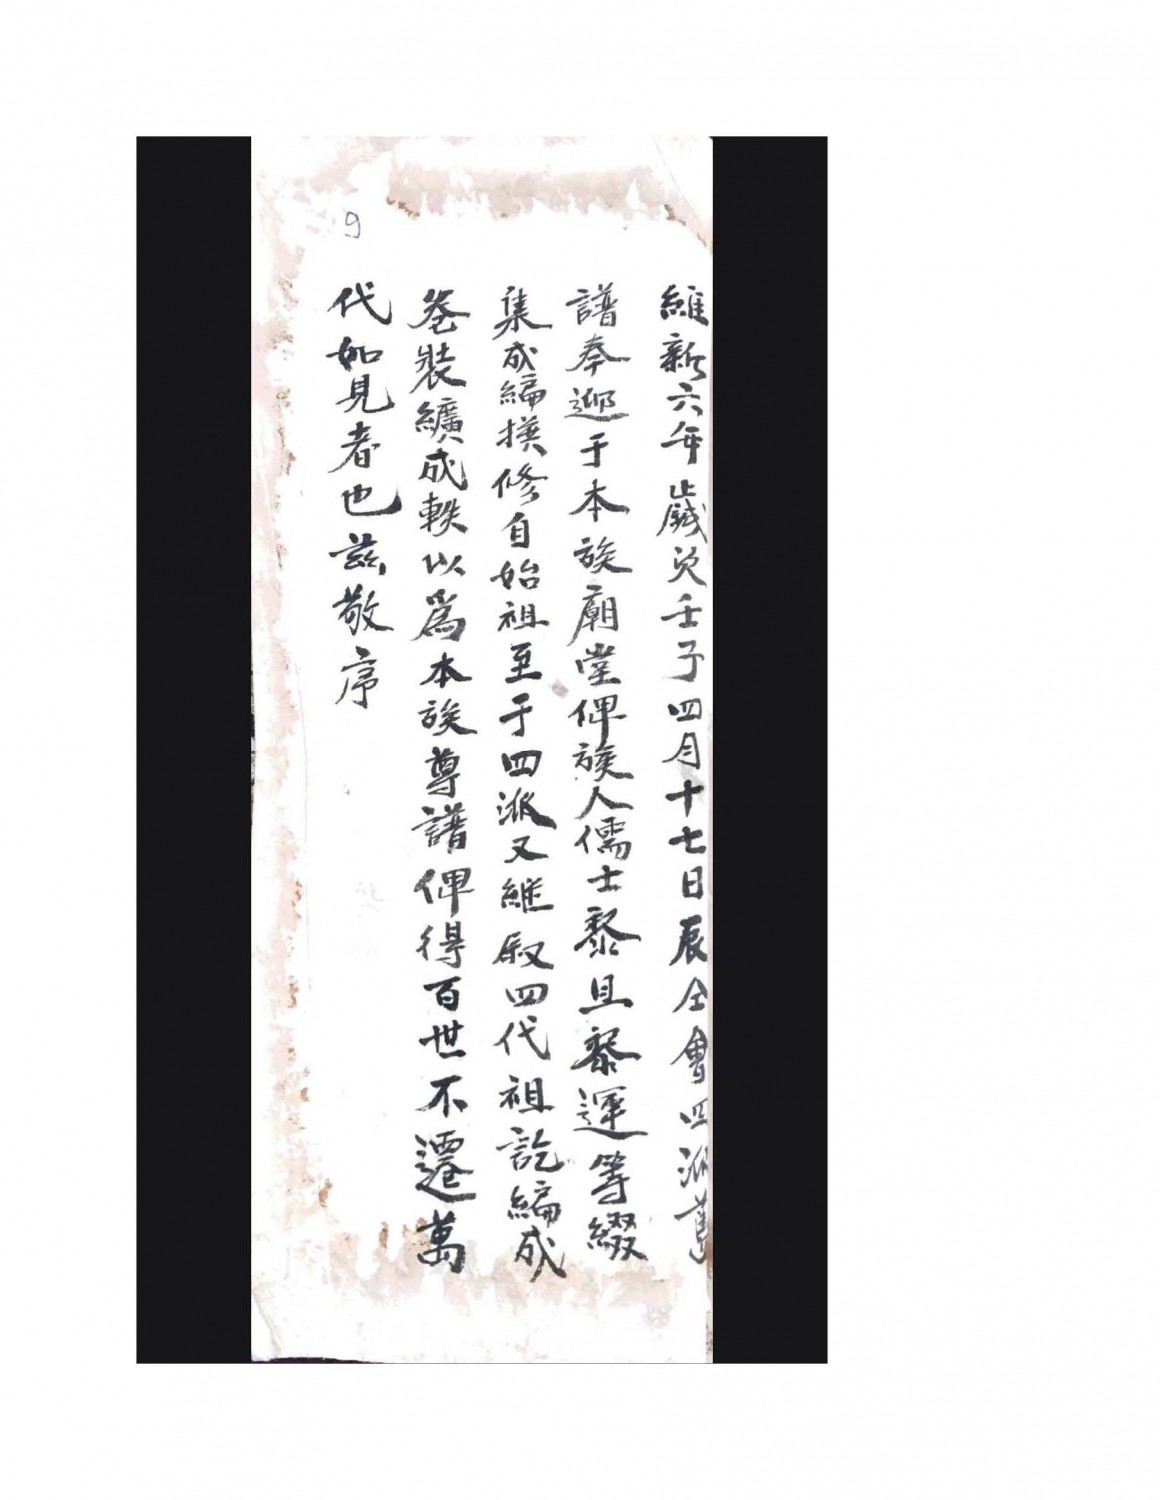 9
維新六年歲次壬子四月十七日辰仝會四派舊
譜奉迎于本族廟堂俾族人儒士黎且黎運等綴
集成編撰修自始祖至于四派又繼叙四代祖訖編成
卷裝纊成軼以爲本族尊譜俾得百世不遷萬
代如見者也茲敬序